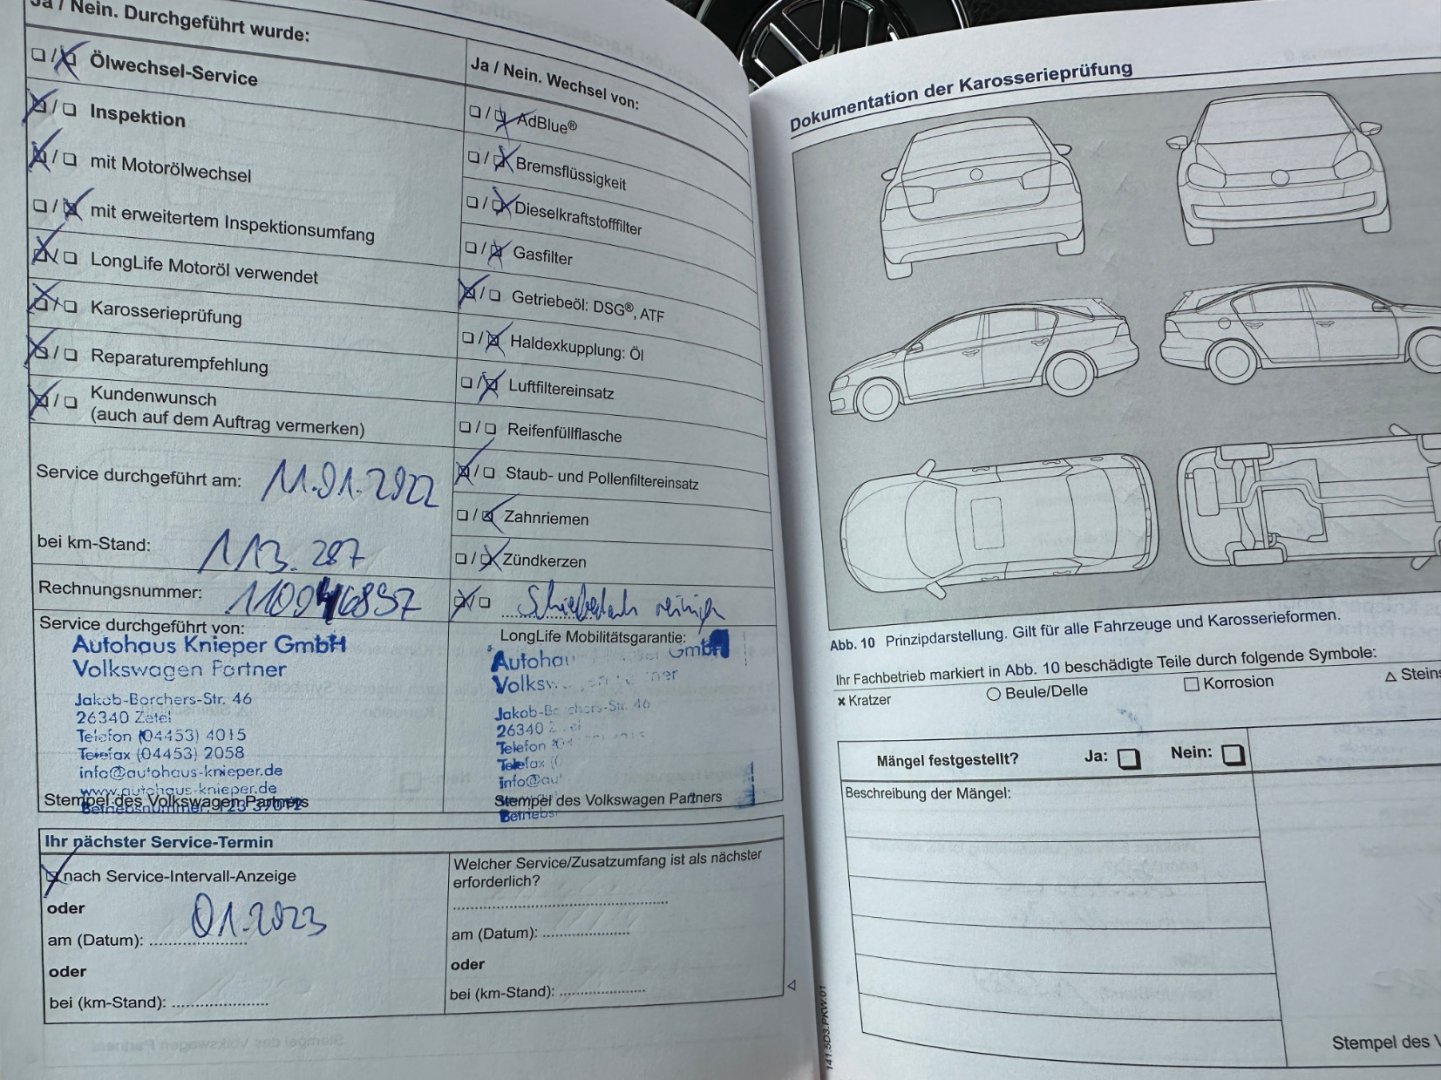 Ja / Nein. Durchgeführt wurde:
Ölwechsel-Service
Inspektion
mit Motorölwechsel
mit erweitertem Inspektionsumfang
LongLife Motoröl verwendet
Karosserieprüfung
Reparaturempfehlung
Kundenwunsch
(auch auf dem Auftrag vermerken)
Service durchgeführt am: 11.01.2022
bei km-Stand: 113.287
Rechnungsnummer:
Service durchgeführt von:
Autohaus Knieper GmbH
Volkswagen Partner
Jakob-Borchers-Str. 46
26340 Zetel
Telefon (04453) 4015
Telefax (04453) 2058
info@autohaus-knieper.de
www.autohaus-knieper.de
Stempel des Volkswagen Partners
Betriebsnummer:
Ja / Nein. Wechsel von:
AdBlue®
Bremsflüssigkeit
Dieselkraftstofffilter
Gasfilter
Getriebeöl: DSG®, ATF
Haldexkupplung: Öl
Luftfiltereinsatz
Reifenfüllflasche
Staub- und Pollenfiltereinsatz
Zahnriemen
Zündkerzen
Schiebedach reinigen
LongLife Mobilitätsgarantie:
GmbH
Jakob-Borchers-Str. 46
26340
Telefon
Telefax
Stempel des Volkswagen Partners
Ihr nächster Service-Termin
nach Service-Intervall-Anzeige
oder
01.2023
am (Datum):
oder
bei (km-Stand):
Welcher Service/Zusatzumfang ist als nächster
erforderlich?
am (Datum):
oder
bei (km-Stand):
Dokumentation der Karosserieprüfung
Abb. 10 Prinzipdarstellung. Gilt für alle Fahrzeuge und Karosserieformen.
Ihr Fachbetrieb markiert in Abb. 10 beschädigte Teile durch folgende Symbole:
× Kratzer ○ Beule/Delle □ Korrosion △ Steins
Mängel festgestellt? Ja: Nein:
Beschreibung der Mängel:
Stempel des V
141.5D3.PKW.01